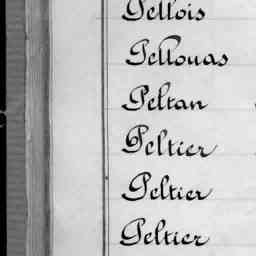 Pellois
Pellouas
Peltan
Peltier
Peltier
Peltier